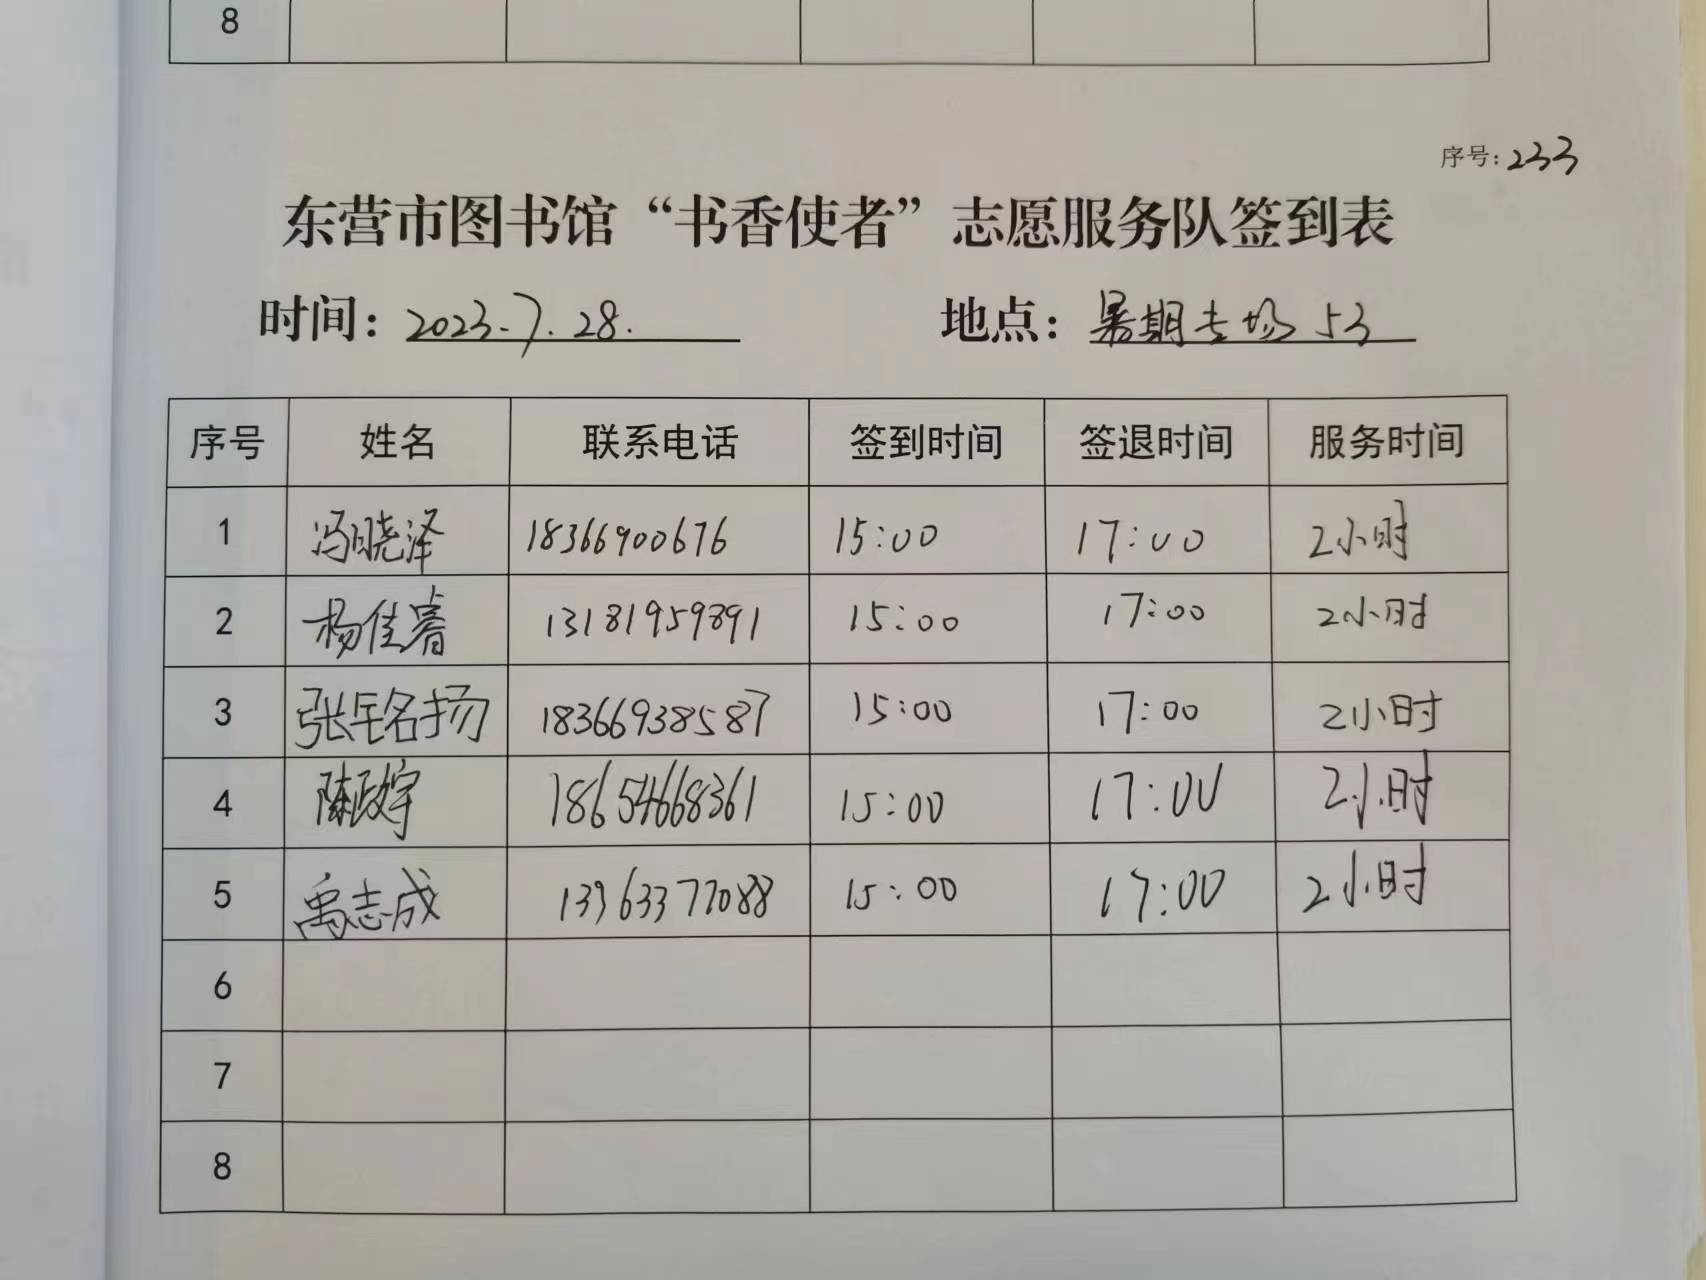 8
序号：233
东营市图书馆“书香使者”志愿服务队签到表
时间：2023.7.28. 地点：暑期专场53
序号 姓名 联系电话 签到时间 签退时间 服务时间
1 冯晓泽 18366900676 15:00 17:00 2小时
2 杨佳睿 13181959891 15:00 17:00 2小时
3 张铭扬 18366938587 15:00 17:00 2小时
4 陈政宇 18654668361 15:00 17:00 2小时
5 禹志成 13963377088 15:00 17:00 2小时
6
7
8